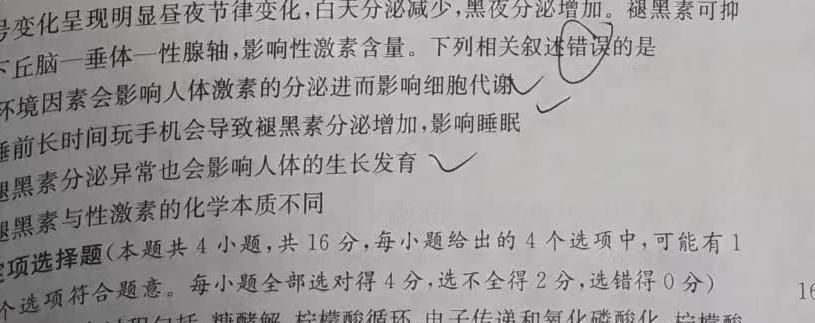 变化呈现明显昼夜节律变化,白天分泌减少,黑夜分泌增加。褪黑素可抑
丘脑—垂体—性腺轴,影响性激素含量。下列相关叙述错误的是
环境因素会影响人体激素的分泌进而影响细胞代谢
睡前长时间玩手机会导致褪黑素分泌增加,影响睡眠
褪黑素分泌异常也会影响人体的生长发育
褪黑素与性激素的化学本质不同
项选择题(本题共4小题,共16分,每小题给出的4个选项中,可能有1
个选项符合题意。每小题全部选对得4分,选不全得2分,选错得0分)
16
糖酵解 柠檬酸循环 电子传递和氧化磷酸化 柠檬酸